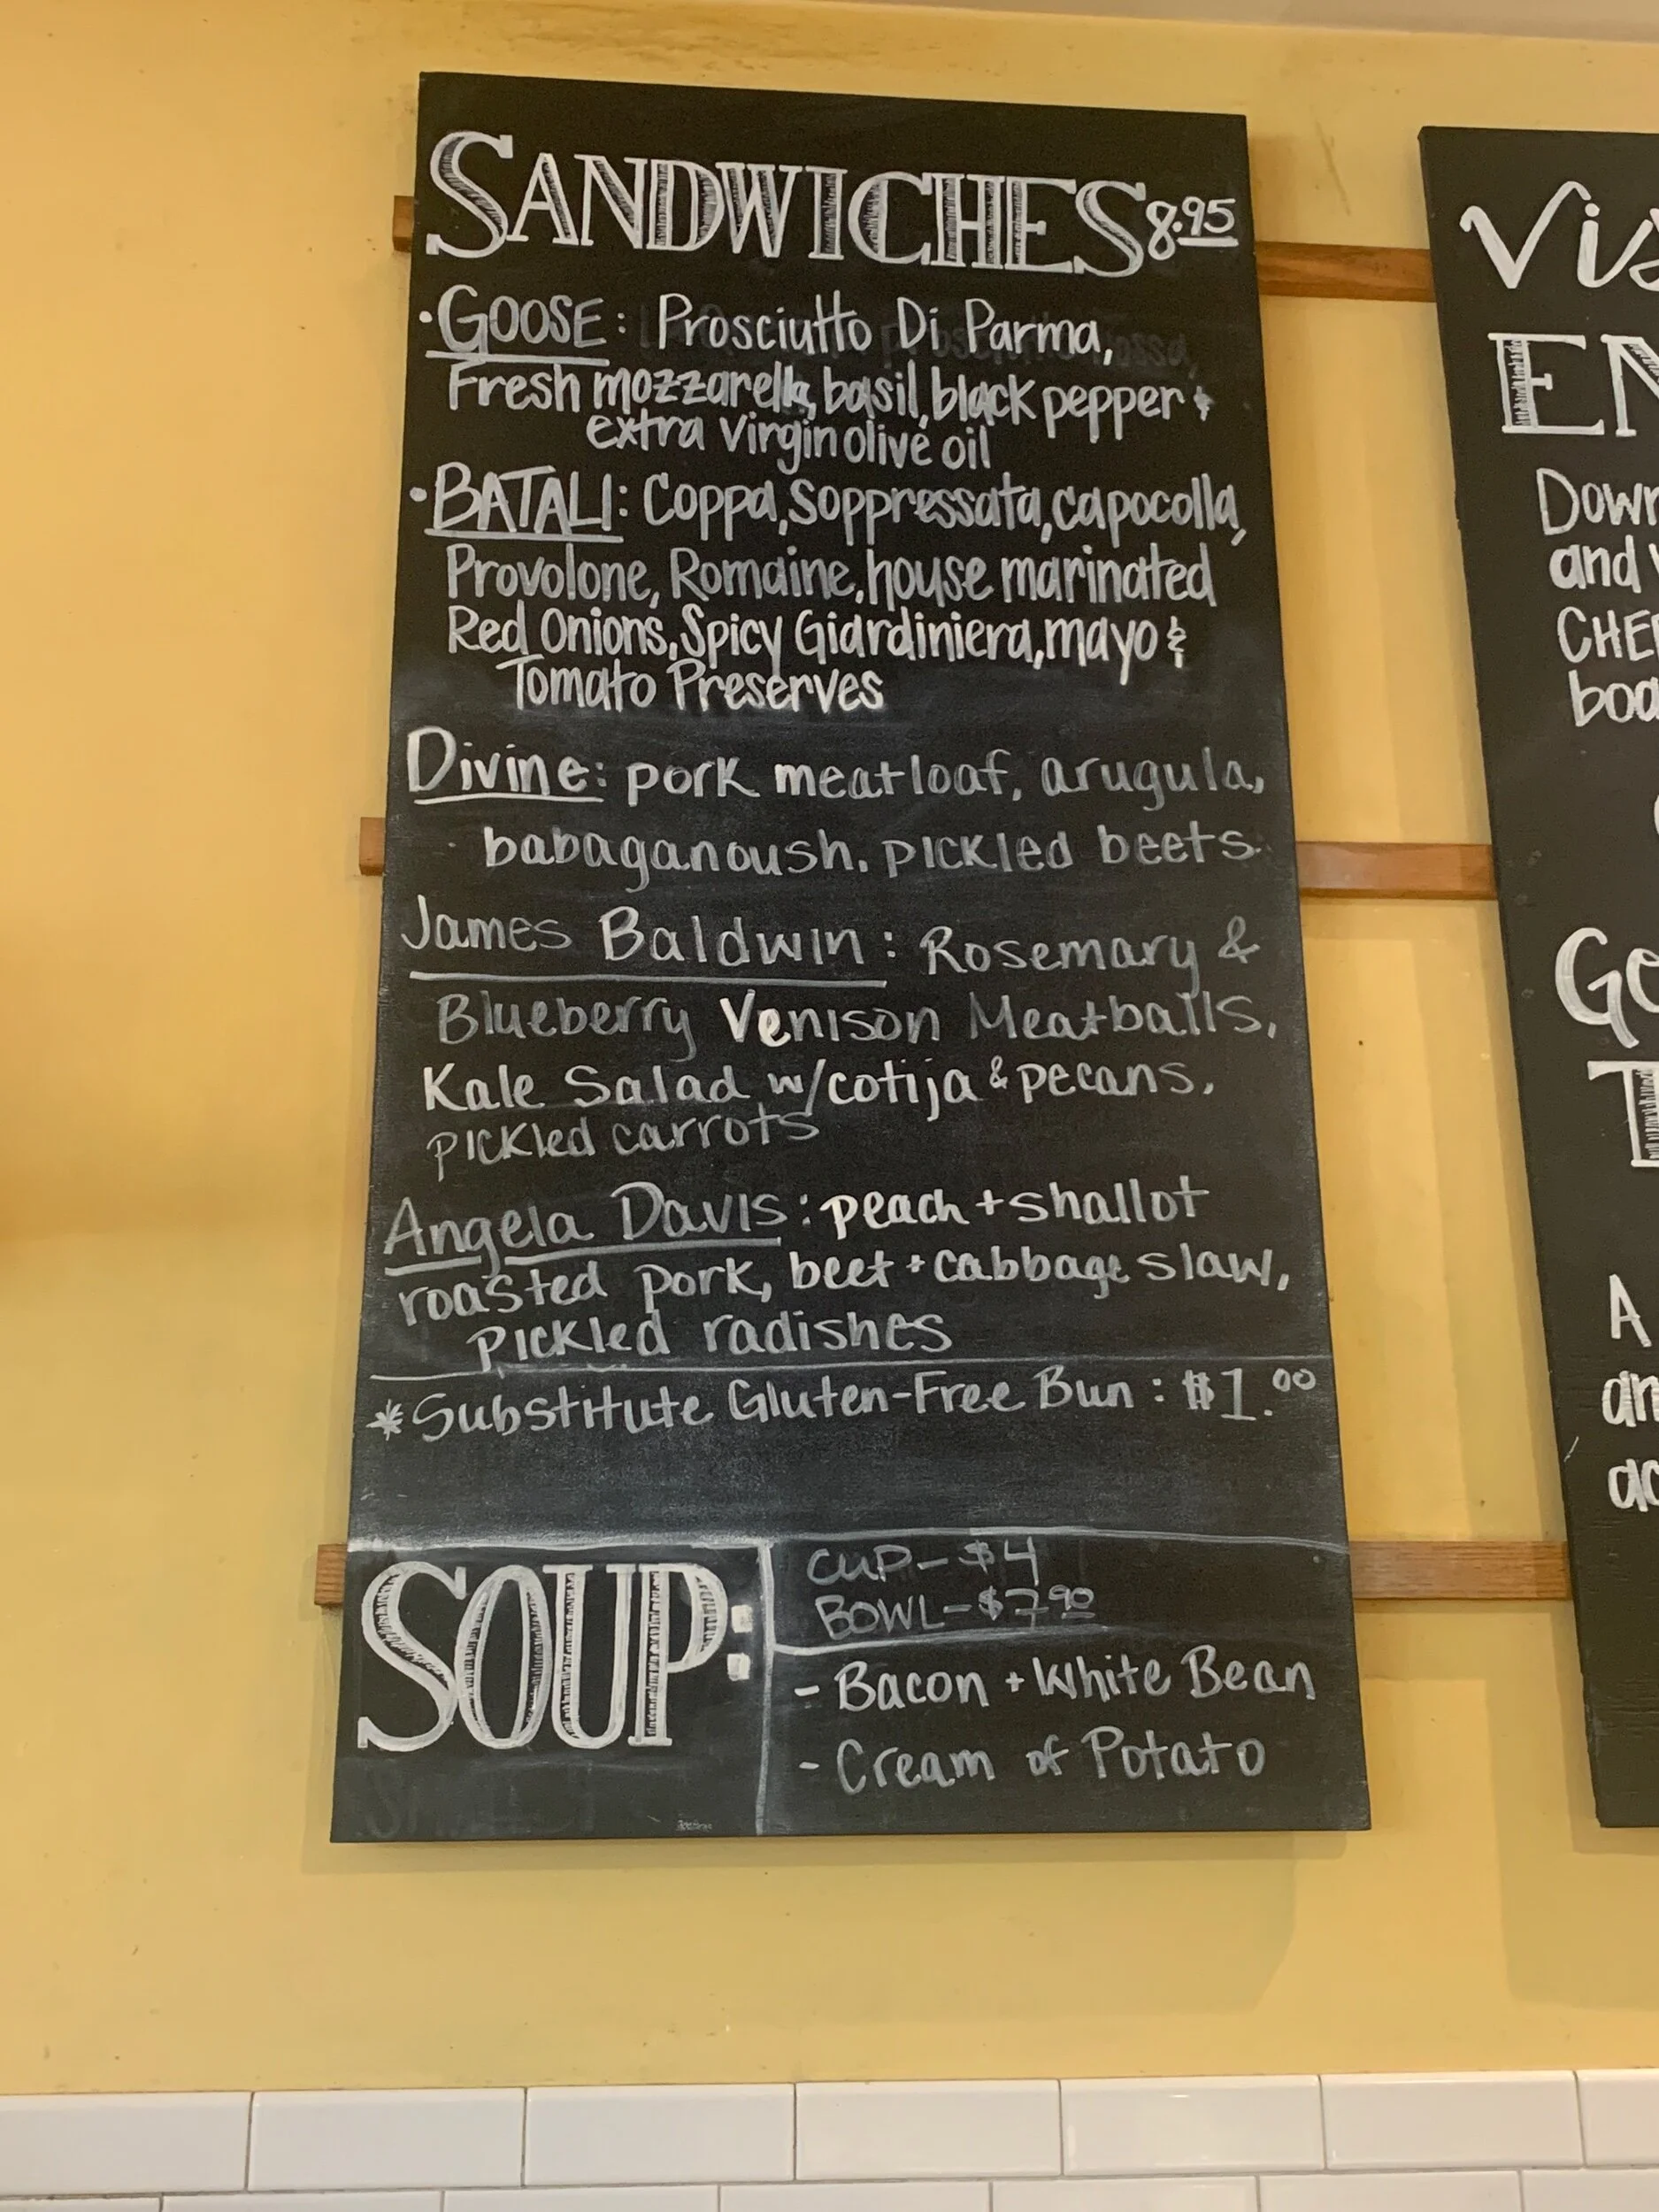 SANDWICHES 8.95
·GOOSE: Prosciutto Di Parma,
Fresh mozzarella, basil, black pepper &
extra virgin olive oil
·BATALI: Coppa, Soppressata, capocolla,
Provolone, Romaine, house marinated
Red Onions, Spicy Giardiniera, mayo &
Tomato Preserves
Divine: pork meatloaf, arugula,
babaganoush, pickled beets.
James Baldwin: Rosemary &
Blueberry Venison Meatballs,
Kale Salad w/cotija & pecans,
pickled carrots
Angela Davis: peach + shallot
roasted pork, beet + cabbage slaw,
pickled radishes
*Substitute Gluten-Free Bun: $1.00
SOUP:
CUP- $4
BOWL- $7.90
- Bacon + White Bean
- Cream of Potato
Down
and
boa
A